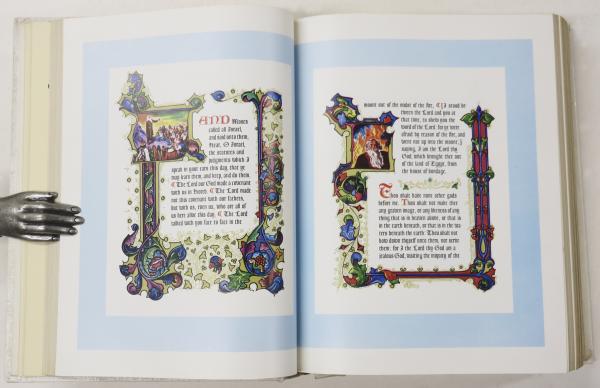 AND Moses
called all Israel,
and said unto them,
Hear, O Israel,
the statutes and
judgments which I
speak in your ears this day, that ye
may learn them, and keep, and do them.
The Lord our God made a covenant
with us in Horeb. The Lord made
not this covenant with our fathers,
but with us, even us, who are all of
us here alive this day. The Lord
talked with you face to face in the
mount out of the midst of the fire, (I stood be
tween the Lord and you at
that time, to shew you the
word of the Lord: for ye were
afraid by reason of the fire, and
went not up into the mount;)
saying, I am the Lord thy
God, which brought thee out
of the land of Egypt, from
the house of bondage.
Thou shalt have none other gods
before me. Thou shalt not make thee
any graven image, or any likeness of any
thing that is in heaven above, or that is
in the earth beneath, or that is in the wa
ters beneath the earth: Thou shalt not
bow down thyself unto them, nor serve
them: for I the Lord thy God am a
jealous God, visiting the iniquity of the